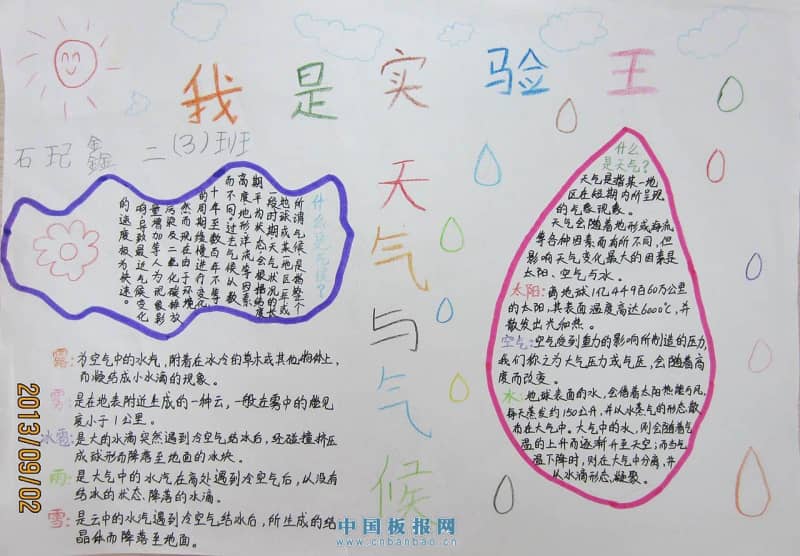 我是实验王
石玘鑫 二(3)班
天气与气候
什么是气候?
所谓气候是指整个
地球或某一地区一年或
一段时期天气状况的长
期平均状态,会根据纬度
高度、地形、洋流等因素
而不同。过去气候从数
十年至数百年不等
的周期缓慢进行变化
然而现在由于环境
污染及二氧化碳排放
量增加等人为现象影
响导致最近气候变化
的速度极为快速
露:为空气中的水汽,附着在冰冷的草木或其他物体上,
而凝结成小水滴的现象。
雾:是在地表附近生成的一种云,一般在雾中的能见
度小于1公里。
冰雹:是大的水滴突然遇到冷空气结冰后,经碰撞挤压
成球形而降落至地面的冰块。
雨:是大气中的水汽在高处遇到冷空气后,从没有
结冰的状态,降落的水滴。
雪:是云中的水汽遇到冷空气结冰后,所生成的结
晶体而降落至地面。
什么
是天气?
天气是指某一地
区在短期内所呈现
的气象现象。
天气会随着地形或海流
等各种因素而有所不同,但
影响天气变化最大的因素是
太阳、空气与水。
太阳:离地球1亿4千9百60万公里
的太阳,其表面温度高达6000℃,并
散发出光和热。
空气:空气受到重力的影响所制造的压力,
我们称之为大气压力或气压,会随着高
度而改变。
水:地球表面的水,会借着太阳热能与风,
每天蒸发约150公升,并从水蒸气的形态散
布在大气中。大气中的水,则会随着气
温的上升而逐渐升至天空;而当气
温下降时,则在大气中分离,并
从水滴形态,凝聚。
2013/09/02
中国板报网
www.cnbanbao.cn